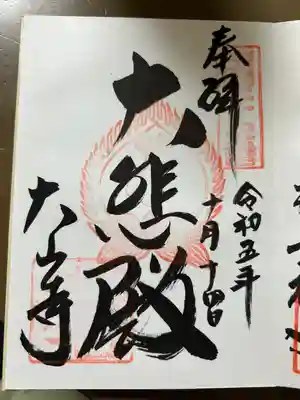 奉拜
令和五年
十月十四日
大悲殿
大山寺